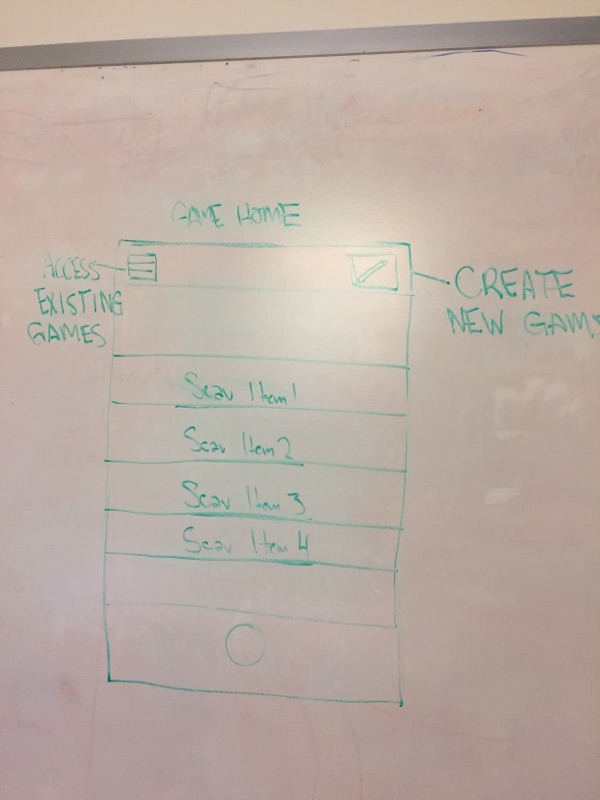 GAME HOME
ACCESS
EXISTING
GAMES
CREATE
NEW GAME
Scav Item 1
Scav Item 2
Scav Item 3
Scav Item 4